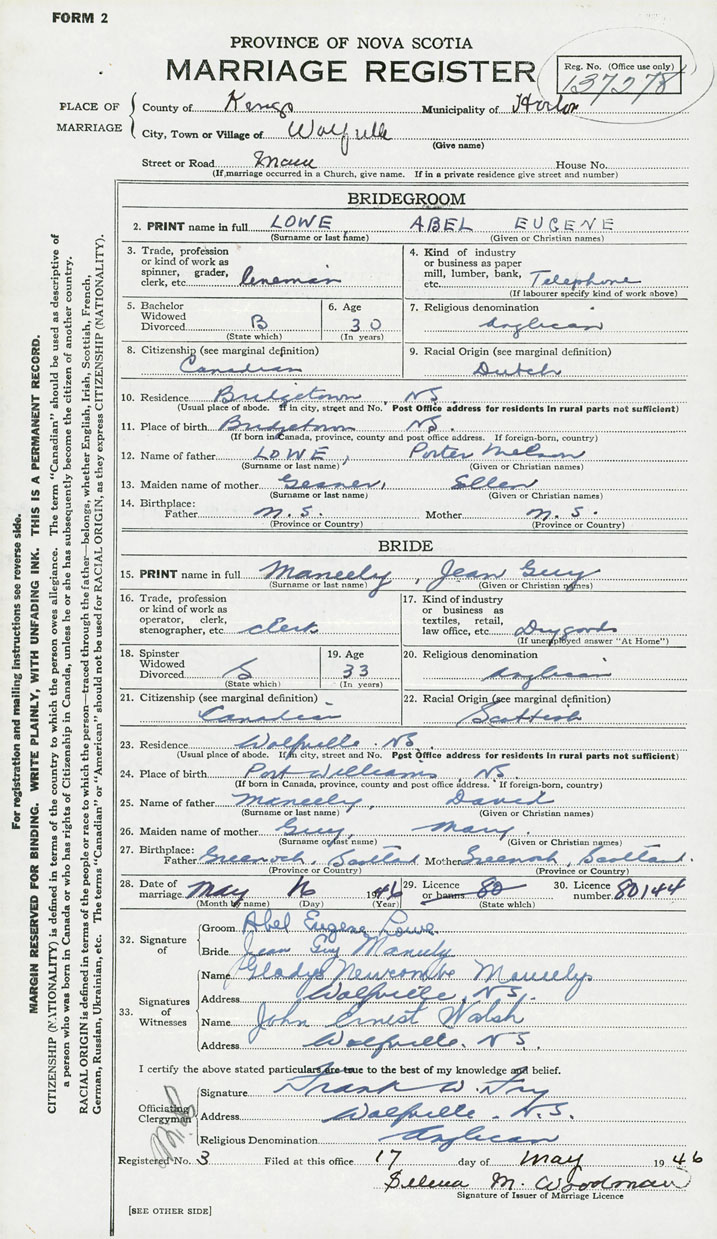 FORM 2
PROVINCE OF NOVA SCOTIA
MARRIAGE REGISTER
Reg. No. (Office use only)
137278
PLACE OF MARRIAGE
County of Kings Municipality of Horton
City, Town or Village of Wolfville
(Give name)
Street or Road Main House No.
(If marriage occurred in a Church, give name. If in a private residence give street and number)
BRIDEGROOM
2. PRINT name in full LOWE ABEL EUGENE
(Surname or last name) (Given or Christian names)
3. Trade, profession or kind of work as spinner, grader, clerk, etc. lineman
4. Kind of industry or business as paper mill, lumber, bank, etc. Telephone
(If labourer specify kind of work above)
5. Bachelor Widowed Divorced B
(State which)
6. Age 30
(In years)
7. Religious denomination Anglican
8. Citizenship (see marginal definition) Canadian
9. Racial Origin (see marginal definition) Dutch
10. Residence Bridgetown NS.
(Usual place of abode. If in city, street and No. Post Office address for residents in rural parts not sufficient)
11. Place of birth Bridgetown NS.
(If born in Canada, province, county and post office address. If foreign-born, country)
12. Name of father LOWE, Porter Melson
(Surname or last name) (Given or Christian names)
13. Maiden name of mother Gesner, Ellen
(Surname or last name) (Given or Christian names)
14. Birthplace:
Father N.S. Mother N.S.
(Province or Country) (Province or Country)
BRIDE
15. PRINT name in full Maneely, Jean Guy
(Surname or last name) (Given or Christian names)
16. Trade, profession or kind of work as operator, clerk, stenographer, etc. clerk
17. Kind of industry or business as textiles, retail, law office, etc Drygoods
(If unemployed answer "At Home")
18. Spinster Widowed Divorced S
(State which)
19. Age 33
(In years)
20. Religious denomination Anglican
21. Citizenship (see marginal definition) Canadian
22. Racial Origin (see marginal definition) Scottish
23. Residence Wolfville NS.
(Usual place of abode. If in city, street and No. Post Office address for residents in rural parts not sufficient)
24. Place of birth Port Williams NS.
(If born in Canada, province, county and post office address. If foreign-born, country)
25. Name of father Maneely, David
(Surname or last name) (Given or Christian names)
26. Maiden name of mother Guy, Mary.
(Surname or last name) (Given or Christian names)
27. Birthplace:
Father Greenock, Scotland Mother Greenock, Scotland.
(Province or Country) (Province or Country)
28. Date of marriage May 16 1946
(Month by name) (Day) (Year)
29. Licence or banns 80
(State which)
30. Licence number 80144
32. Signature of
Groom Abel Eugene Lowe
Bride Jean Guy Maneely
33. Signatures of Witnesses
Name Gladys Newcombe Maneely
Address Wolfville, N.S.
Name John Ernest Walsh
Address Wolfville. N.S.
I certify the above stated particulars are true to the best of my knowledge and belief.
Officiating Clergyman
Signature Frank W. Fry
Address Wolfville. N.S.
Religious Denomination Anglican
Registered No. 3 Filed at this office 17 day of May 1946
Selena M. Woodman
Signature of Issuer of Marriage Licence
[SEE OTHER SIDE]
For registration and mailing instructions see reverse side.
MARGIN RESERVED FOR BINDING. WRITE PLAINLY, WITH UNFADING INK. THIS IS A PERMANENT RECORD.
CITIZENSHIP (NATIONALITY) is defined in terms of the country to which the person owes allegiance. The term "Canadian" should be used as descriptive of
a person who was born in Canada or who has rights of Citizenship in Canada, unless he or she has subsequently become the citizen of another country.
RACIAL ORIGIN is defined in terms of the people or race to which the person—traced through the father—belongs, whether English, Irish, Scottish, French,
German, Russian, Ukrainian, etc. The terms "Canadian" or "American" should not be used for RACIAL ORIGIN, as they express CITIZENSHIP (NATIONALITY).